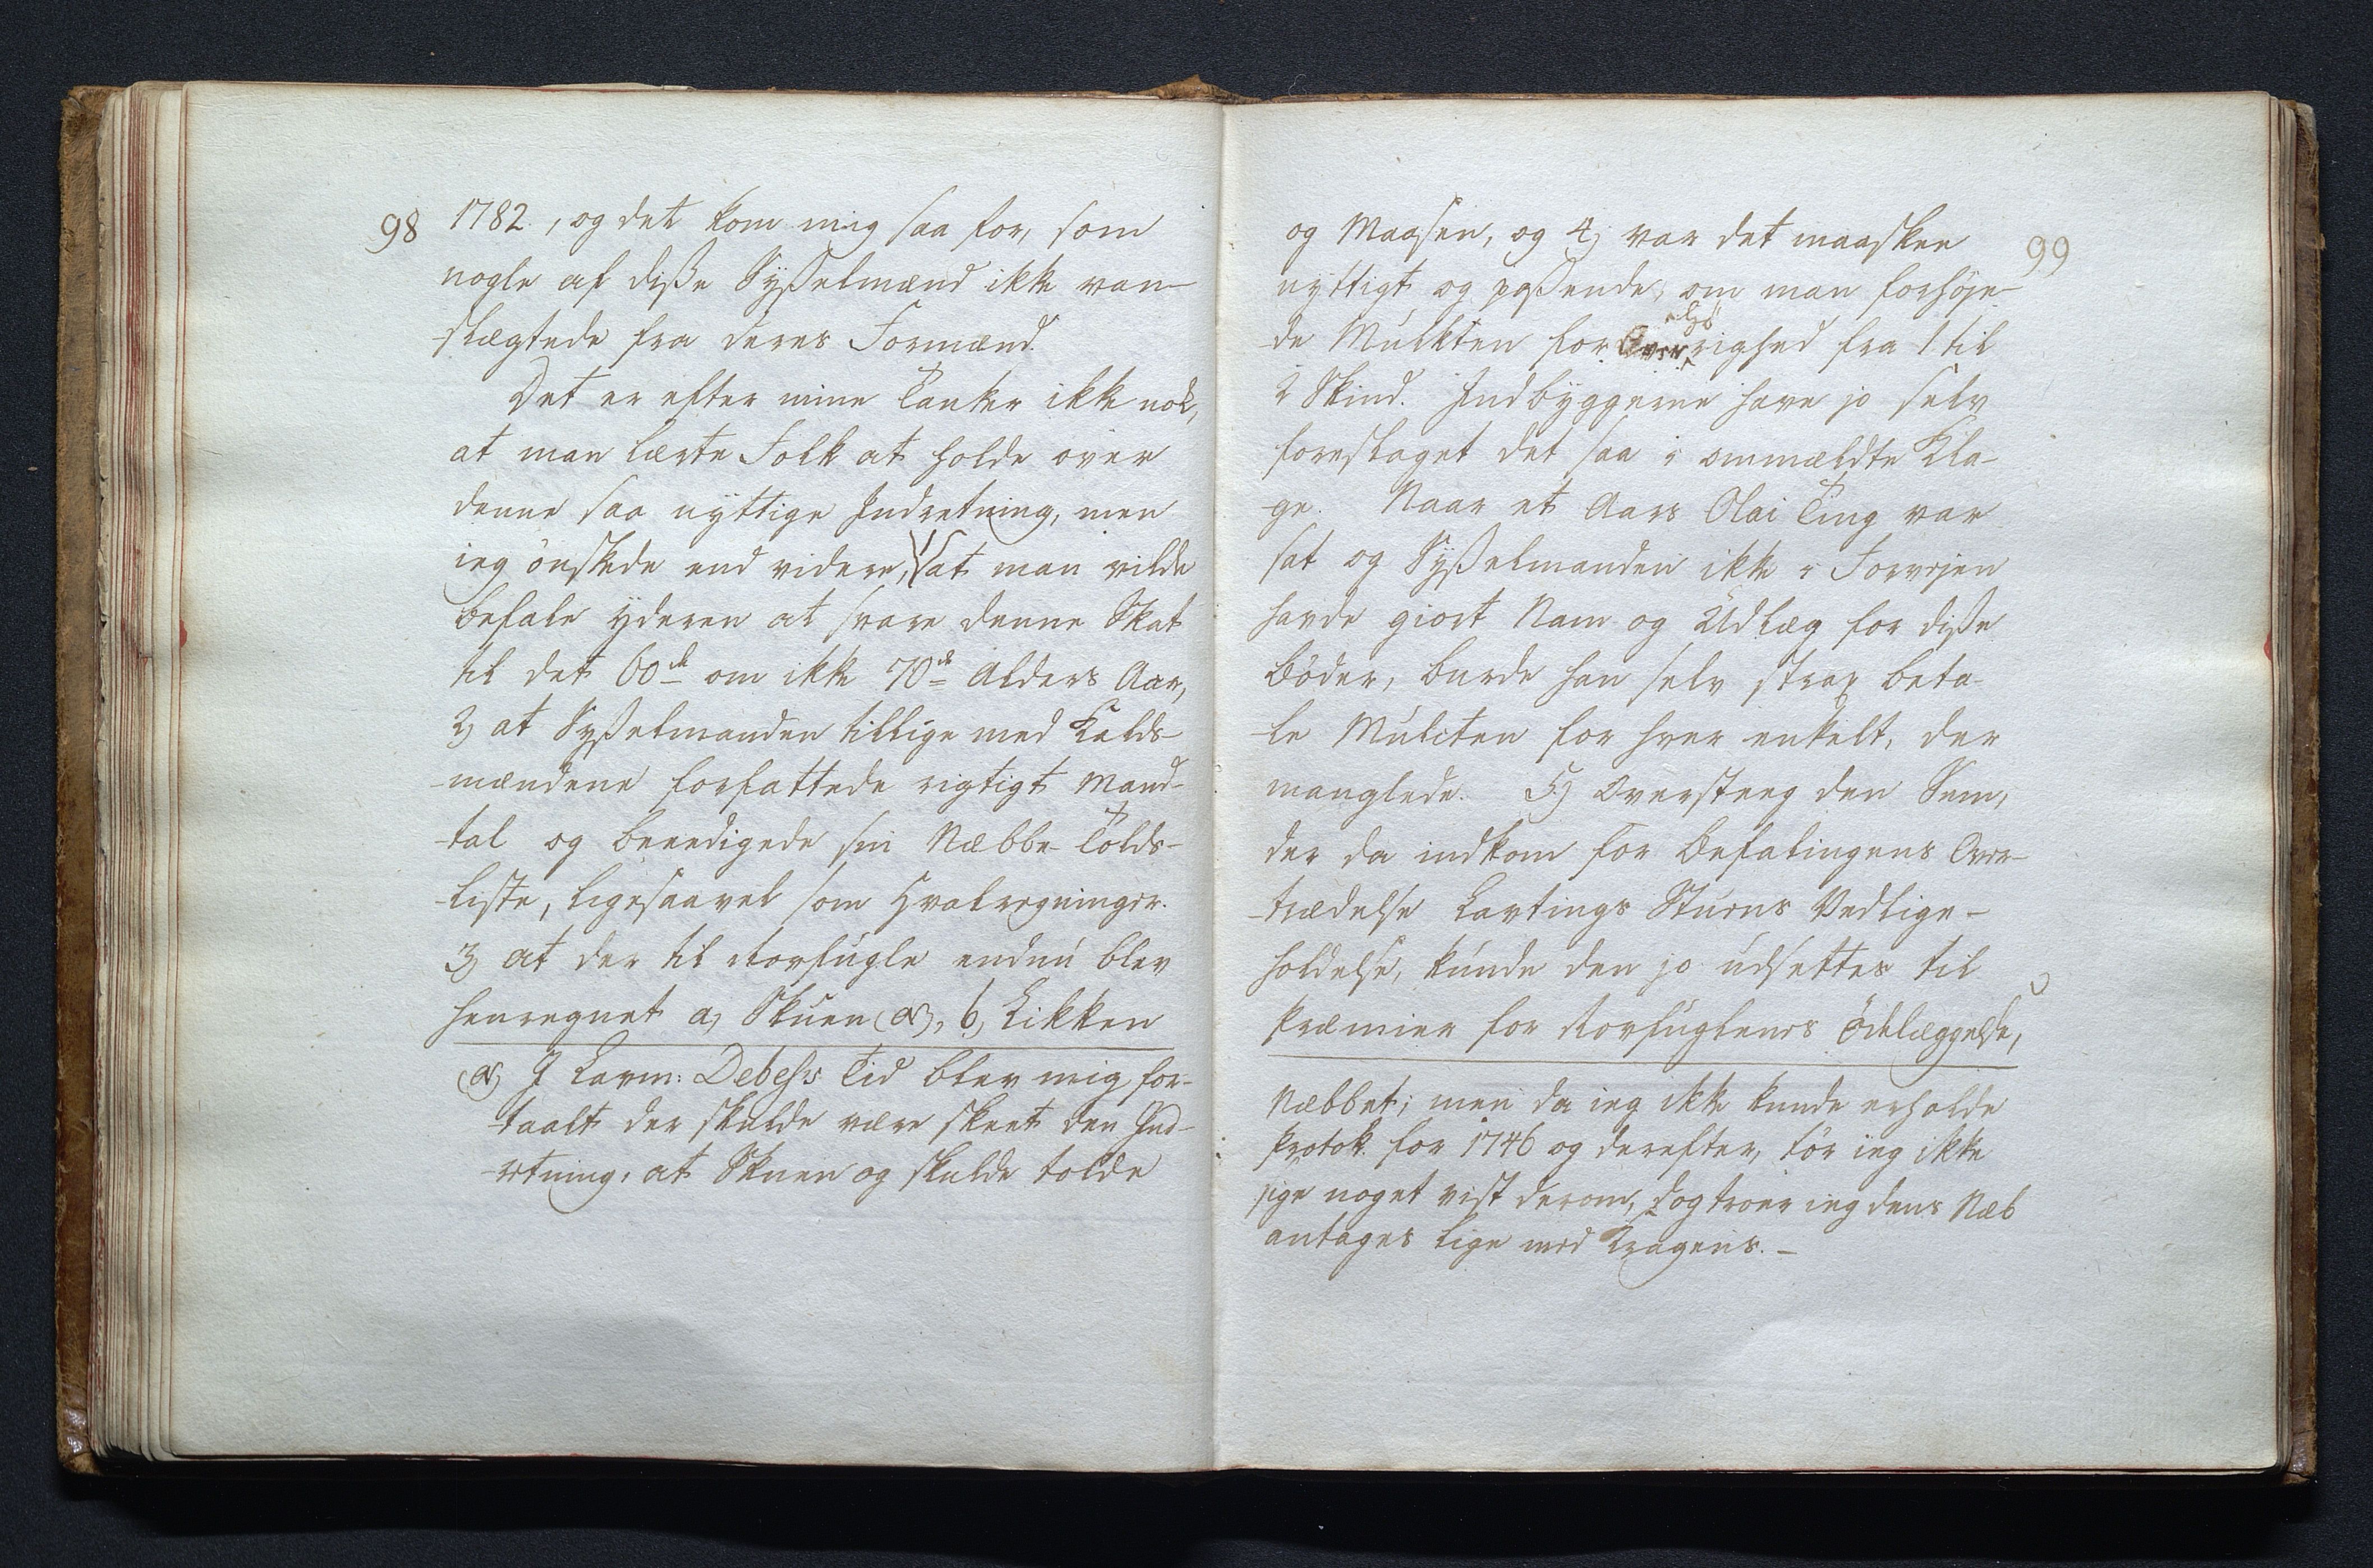 98
1782., og det kom mig saa for, som
nogle af diße Sysselmænd ikke van-
slægtede fra deres Formænd.
Det er efter mine Tanker ikke nok,
at man lærte Folk at holde over
denne saa nyttige Indretning, men
ieg önskede end videre, 1) at man vilde
befale yderen at svare denne Skat
til det 60de om ikke 70de Alders Aar,
2) at Sysselmanden tillige med Kalds-
mændene forfattede rigtigt Mand-
tal og beeedigede sin Næbbe-Tolds-
Liste, ligesaavel som Hvalregninger.
3) at der til Rovfugle endnu blev
henregnet a) Skuen (a), b) Likken
(a) I Lavm: Debes's Tid blev mig for-
taalt der skulde være skeet den Ind-
retning, at Skuen og skulde tolde
99
og Maasen, og 4) var det maaskee
nyttigt og paßende, om man forhöje-
de Mulkten for righed fra 1 til
2 Skind. Indbyggerne have jo selv
foreslaget det saa i ommældte Kla-
ge. Naar et Aars Olai Ting var
sat og Sysselmanden ikke i Forvejen
havde giort Nam og Udlæg for diße
Böder, burde han selv strax beta-
le Mulcten for hver enkelt, der
manglede. 5) Oversteeg den Sum,
der da indkom for Befalingens Over-
trædelse Lavtings Stuens Vedlige-
holdelse, kunde den jo udsettes til
Præmier for Rovfuglenes Ödelæggelse,
Næbbet; men da ieg ikke kunde erholde
Protok. for 1746 og derefter, tör ieg ikke
sige noget vist derom, dog troer ieg dens Næb
antages lige med Kragens. -